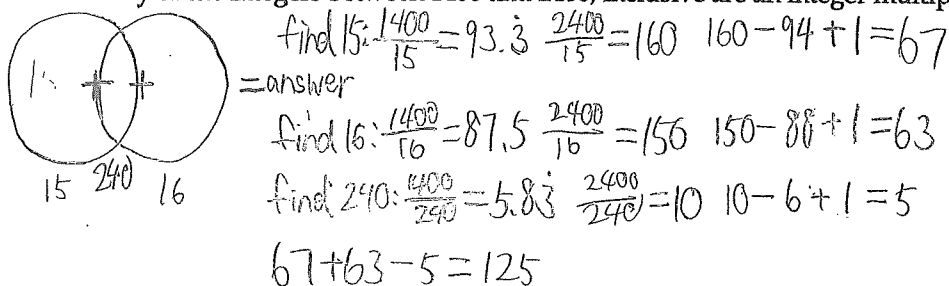 find 15: 1400/15 = 93.3̇ 2400/15 = 160 160 - 94 + 1 = 67
= answer
find 16: 1400/16 = 87.5 2400/16 = 150 150 - 88 + 1 = 63
15 240 16
find 240: 1400/240 = 5.83̇ 2400/240 = 10 10 - 6 + 1 = 5
67 + 63 - 5 = 125